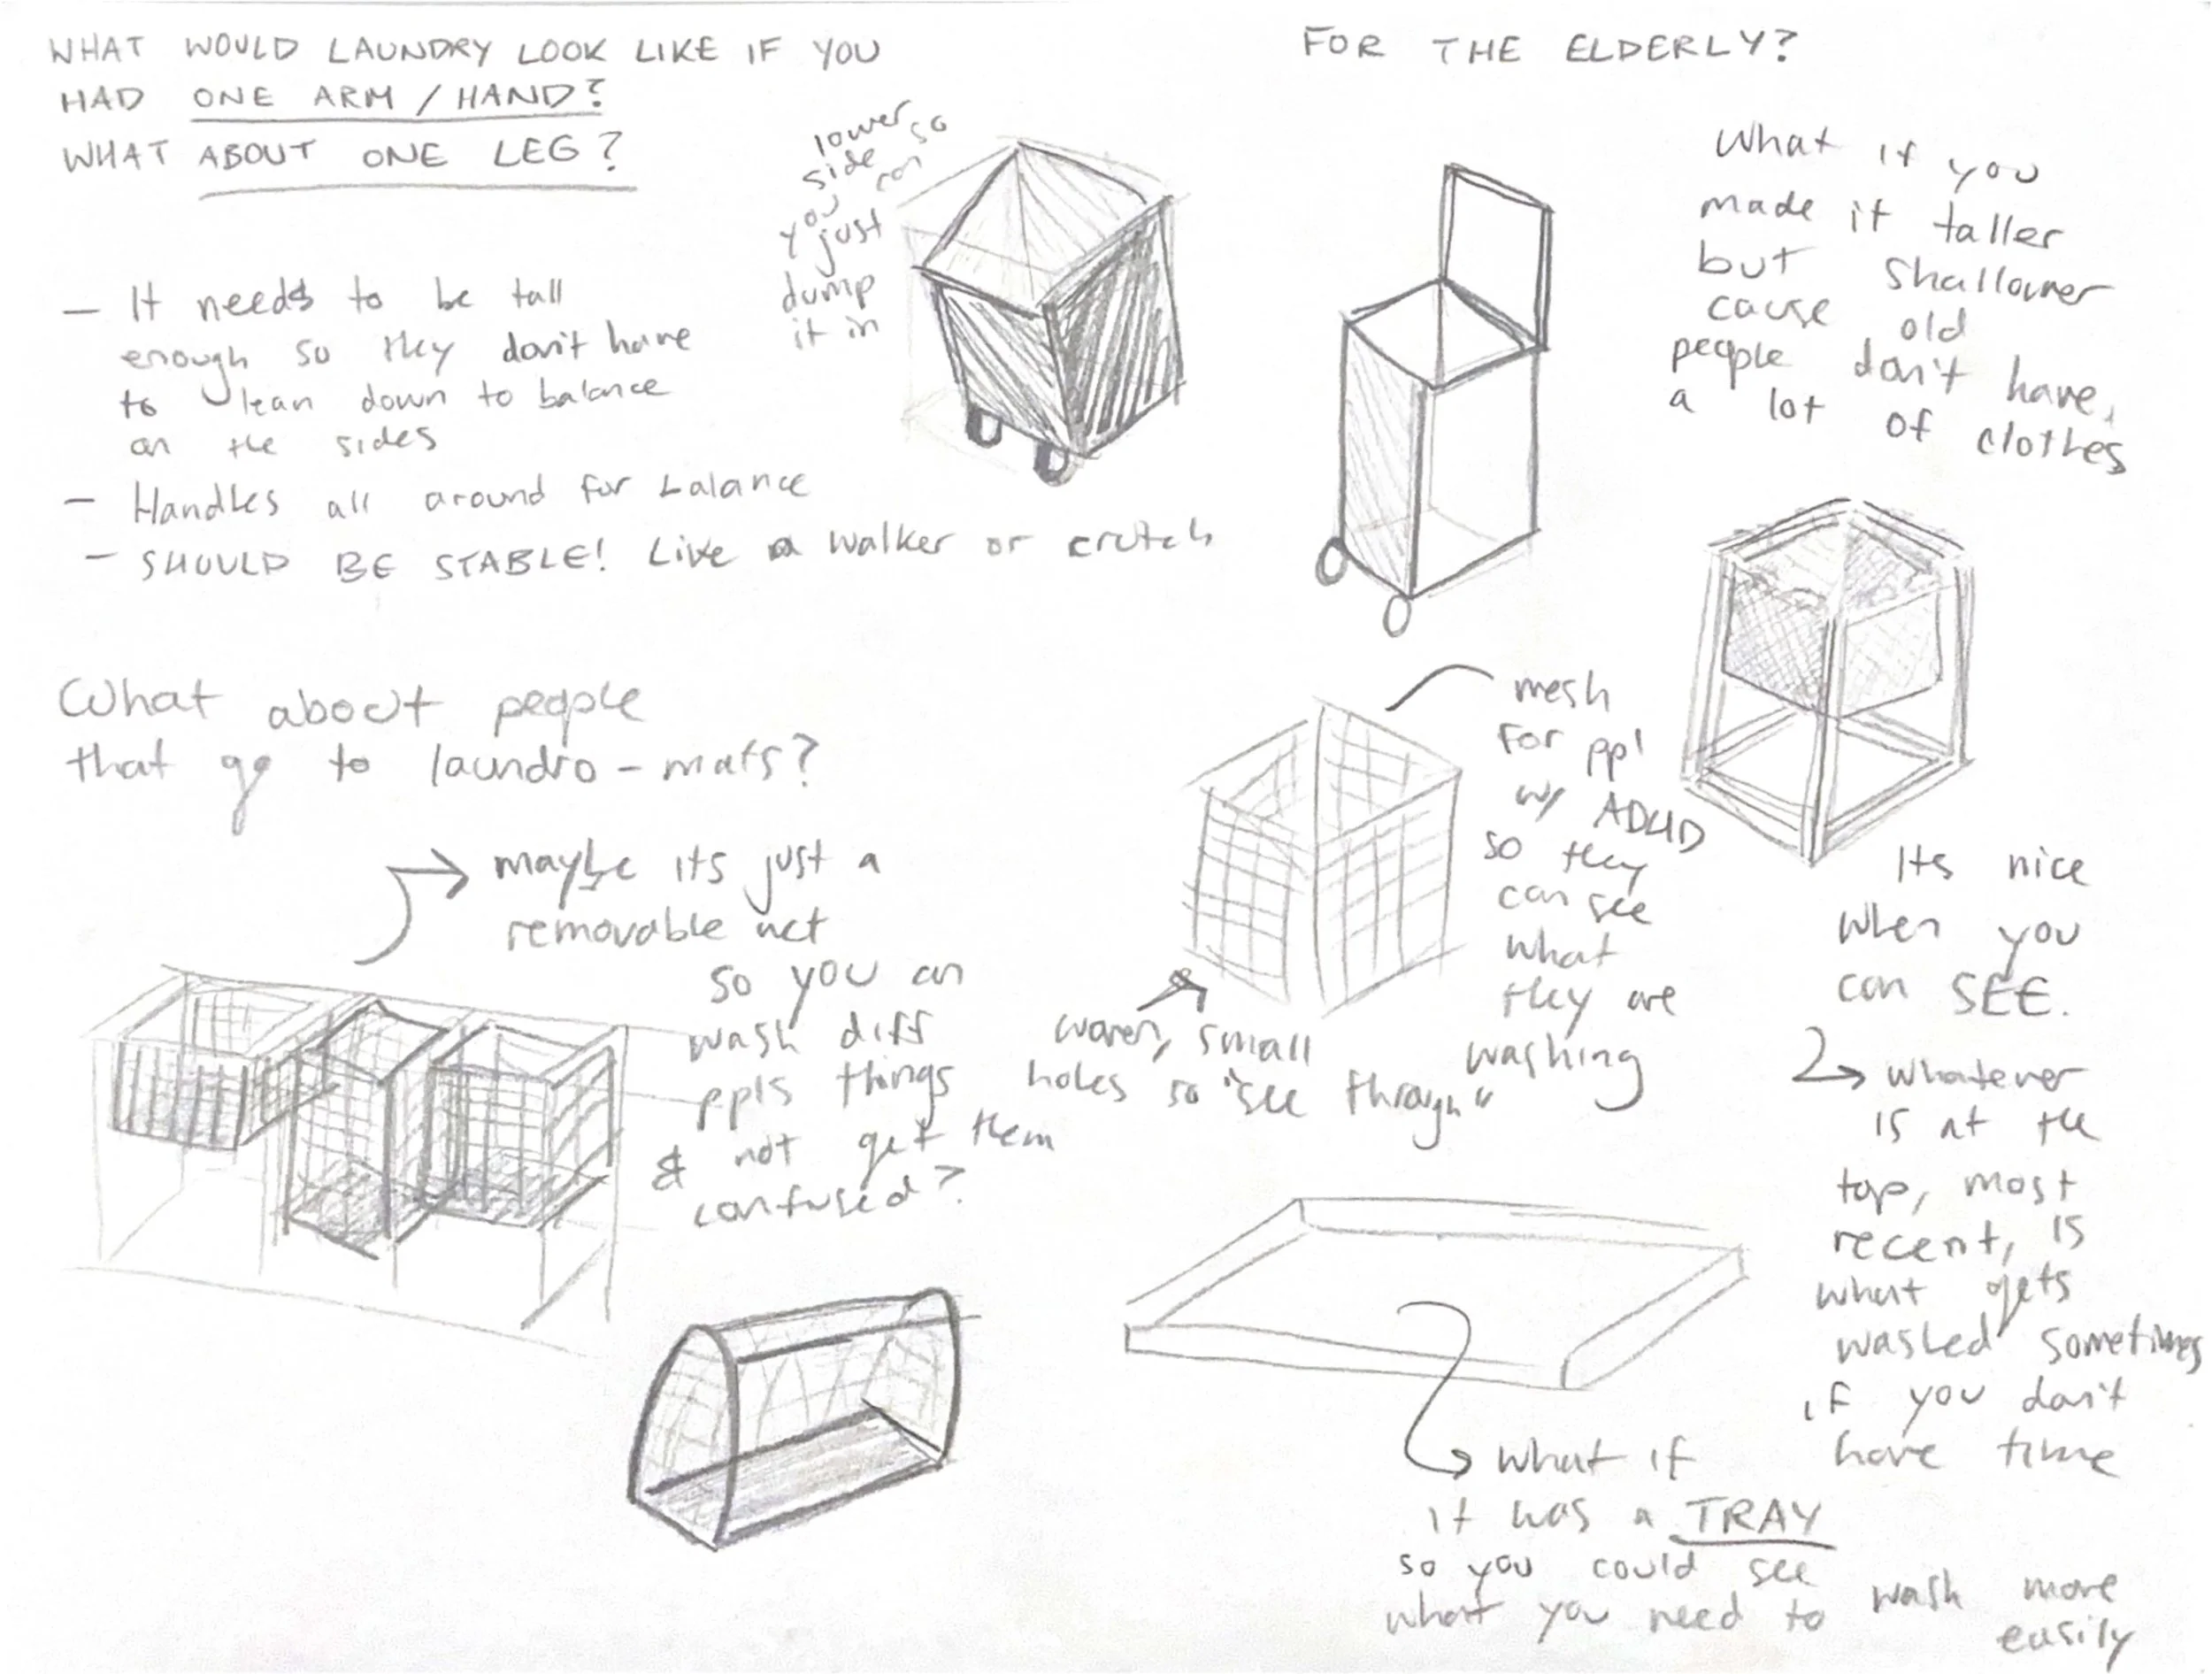 WHAT WOULD LAUNDRY LOOK LIKE IF YOU
HAD ONE ARM / HAND?
WHAT ABOUT ONE LEG?
- It needs to be tall
enough so they don't have
to lean down to balance
on the sides
- Handles all around for balance
- SHOULD BE STABLE! Like a walker or crutch
lower
side so
you can
just
dump
it in
FOR THE ELDERLY?
What if you
made it taller
but shallower
cause old
people don't have
a lot of clothes
What about people
that go to laundro-mats?
maybe its just a
removable net
so you can
wash diff
ppls things
& not get them
confused?
mesh
for ppl
w/ ADHD
so they
can see
what
they are
washing
woven, small
holes so "see through"
Its nice
when you
can SEE.
whatever
is at the
top, most
recent, is
what gets
washed sometimes
if you don't
have time
what if
it was a TRAY
so you could see
what you need to wash more
easily